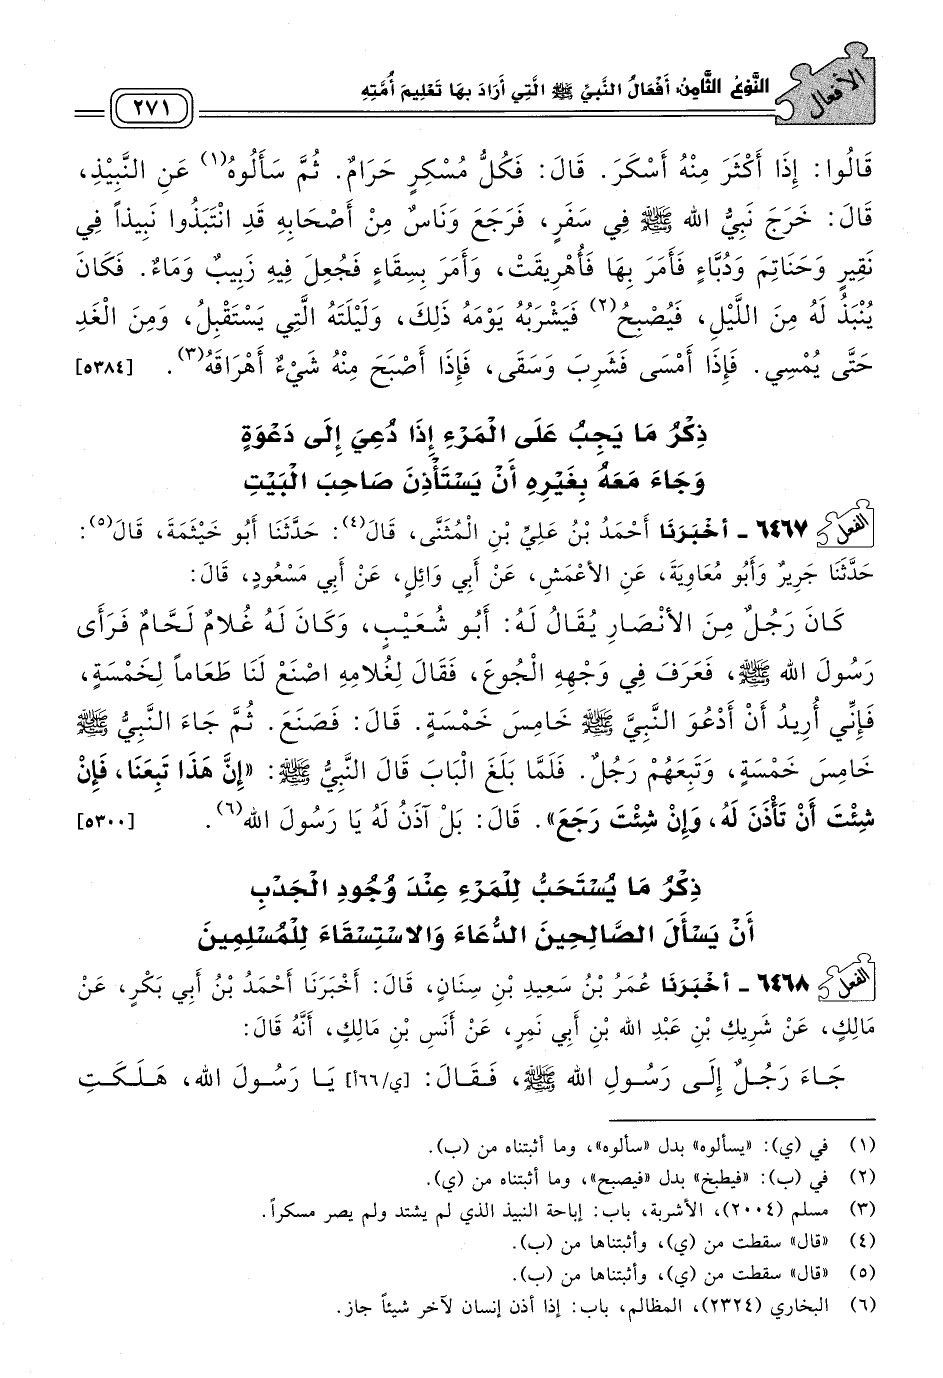 الأفعال
النَّوْعُ الثَّامِنُ: أَفْعَالُ النَّبِيِّ ﷺ الَّتِي أَرَادَ بِهَا تَعْلِيمَ أُمَّتِهِ
٢٧١
قَالُوا: إِذَا أَكْثَرَ مِنْهُ أَسْكَرَ. قَالَ: فَكُلُّ مُسْكِرٍ حَرَامٌ. ثُمَّ سَأَلُوهُ(١) عَنِ النَّبِيْذِ،
قَالَ: خَرَجَ نَبِيُّ الله ﷺ فِي سَفَرٍ، فَرَجَعَ وَنَاسٌ مِنْ أَصْحَابِهِ قَدِ انْتَبَذُوا نَبِيذاً فِي
نَقِيرٍ وَحَنَاتِمَ وَدُبَّاءٍ فَأَمَرَ بِهَا فَأُهْرِيقَتْ، وَأَمَرَ بِسِقَاءٍ فَجُعِلَ فِيهِ زَبِيبٌ وَمَاءٌ. فَكَانَ
يُنْبَذُ لَهُ مِنَ اللَّيْلِ، فَيُصْبِحُ(٢) فَيَشْرَبُهُ يَوْمَهُ ذَلِكَ، وَلَيْلَتَهُ الَّتِي يَسْتَقْبِلُ، وَمِنَ الْغَدِ
حَتَّى يُمْسِي. فَإِذَا أَمْسَى فَشَرِبَ وَسَقَى، فَإِذَا أَصْبَحَ مِنْهُ شَيْءٌ أَهْرَاقَهُ(٣). [٥٣٨٤]
ذِكْرُ مَا يَجِبُ عَلَى الْمَرْءِ إِذَا دُعِيَ إِلَى دَعْوَةٍ
وَجَاءَ مَعَهُ بِغَيْرِهِ أَنْ يَسْتَأْذِنَ صَاحِبَ الْبَيْتِ
الفعل ٦٤٦٧ - أخْبَرَنَا أَحْمَدُ بْنُ عَلِيِّ بْنِ الْمُثَنَّى، قَالَ(٤): حَدَّثَنَا أَبُو خَيْثَمَةَ، قَالَ(٥):
حَدَّثَنَا جَرِيرٌ وَأَبُو مُعَاوِيَةَ، عَنِ الأعْمَشِ، عَنْ أَبِي وَائِلٍ، عَنْ أَبِي مَسْعُودٍ، قَالَ:
كَانَ رَجُلٌ مِنَ الأنْصَارِ يُقَالُ لَهُ: أَبُو شُعَيْبٍ، وَكَانَ لَهُ غُلَامٌ لَحَّامٌ فَرَأَى
رَسُولَ الله ﷺ، فَعَرَفَ فِي وَجْهِهِ الْجُوعَ، فَقَالَ لِغُلَامِهِ اصْنَعْ لَنَا طَعَاماً لِخَمْسَةٍ،
فَإِنِّي أُرِيدُ أَنْ أَدْعُوَ النَّبِيَّ ﷺ خَامِسَ خَمْسَةٍ. قَالَ: فَصَنَعَ. ثُمَّ جَاءَ النَّبِيُّ ﷺ
خَامِسَ خَمْسَةٍ، وَتَبِعَهُمْ رَجُلٌ. فَلَمَّا بَلَغَ الْبَابَ قَالَ النَّبِيُّ ﷺ: «إِنَّ هَذَا تَبِعَنَا، فَإِنْ
شِئْتَ أَنْ تَأْذَنَ لَهُ، وَإِنْ شِئْتَ رَجَعَ». قَالَ: بَلْ آذَنُ لَهُ يَا رَسُولَ الله(٦). [٥٣٠٠]
ذِكْرُ مَا يُسْتَحَبُّ لِلْمَرْءِ عِنْدَ وُجُودِ الْجَدْبِ
أَنْ يَسْأَلَ الصَّالِحِينَ الدُّعَاءَ وَالاسْتِسْقَاءَ لِلْمُسْلِمِينَ
الفعل ٦٤٦٨ - أخْبَرَنَا عُمَرُ بْنُ سَعِيدِ بْنِ سِنَانٍ، قَالَ: أَخْبَرَنَا أَحْمَدُ بْنُ أَبِي بَكْرٍ، عَنْ
مَالِكٍ، عَنْ شَرِيكِ بْنِ عَبْدِ الله بْنِ أَبِي نَمِرٍ، عَنْ أَنَسِ بْنِ مَالِكٍ، أَنَّهُ قَالَ:
جَاءَ رَجُلٌ إِلَى رَسُولِ الله ﷺ، فَقَالَ: [ي/٦٦أ] يَا رَسُولَ الله، هَلَكَتِ
(١) في (ي): «يسألوه» بدل «سألوه»، وما أثبتناه من (ب).
(٢) في (ب): «فيطبخ» بدل «فيصبح»، وما أثبتناه من (ي).
(٣) مسلم (٢٠٠٤)، الأشربة، باب: إباحة النبيذ الذي لم يشتد ولم يصر مسكراً.
(٤) «قال» سقطت من (ي)، وأثبتناها من (ب).
(٥) «قال» سقطت من (ي)، وأثبتناها من (ب).
(٦) البخاري (٢٣٢٤)، المظالم، باب: إذا أذن إنسان لآخر شيئاً جاز.